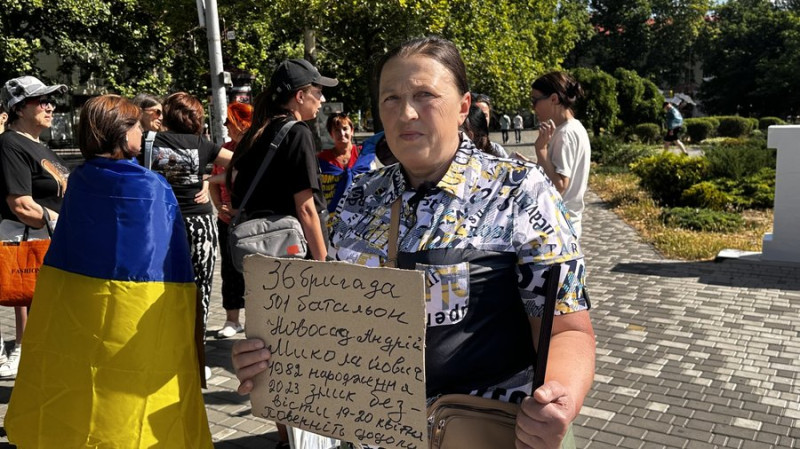 36 бригада
501 батальон
Новосад Андрій
Миколайович
1982 народження
2023 зник без-
вісти 19-20 квітня
Поверніть додому
FASHION